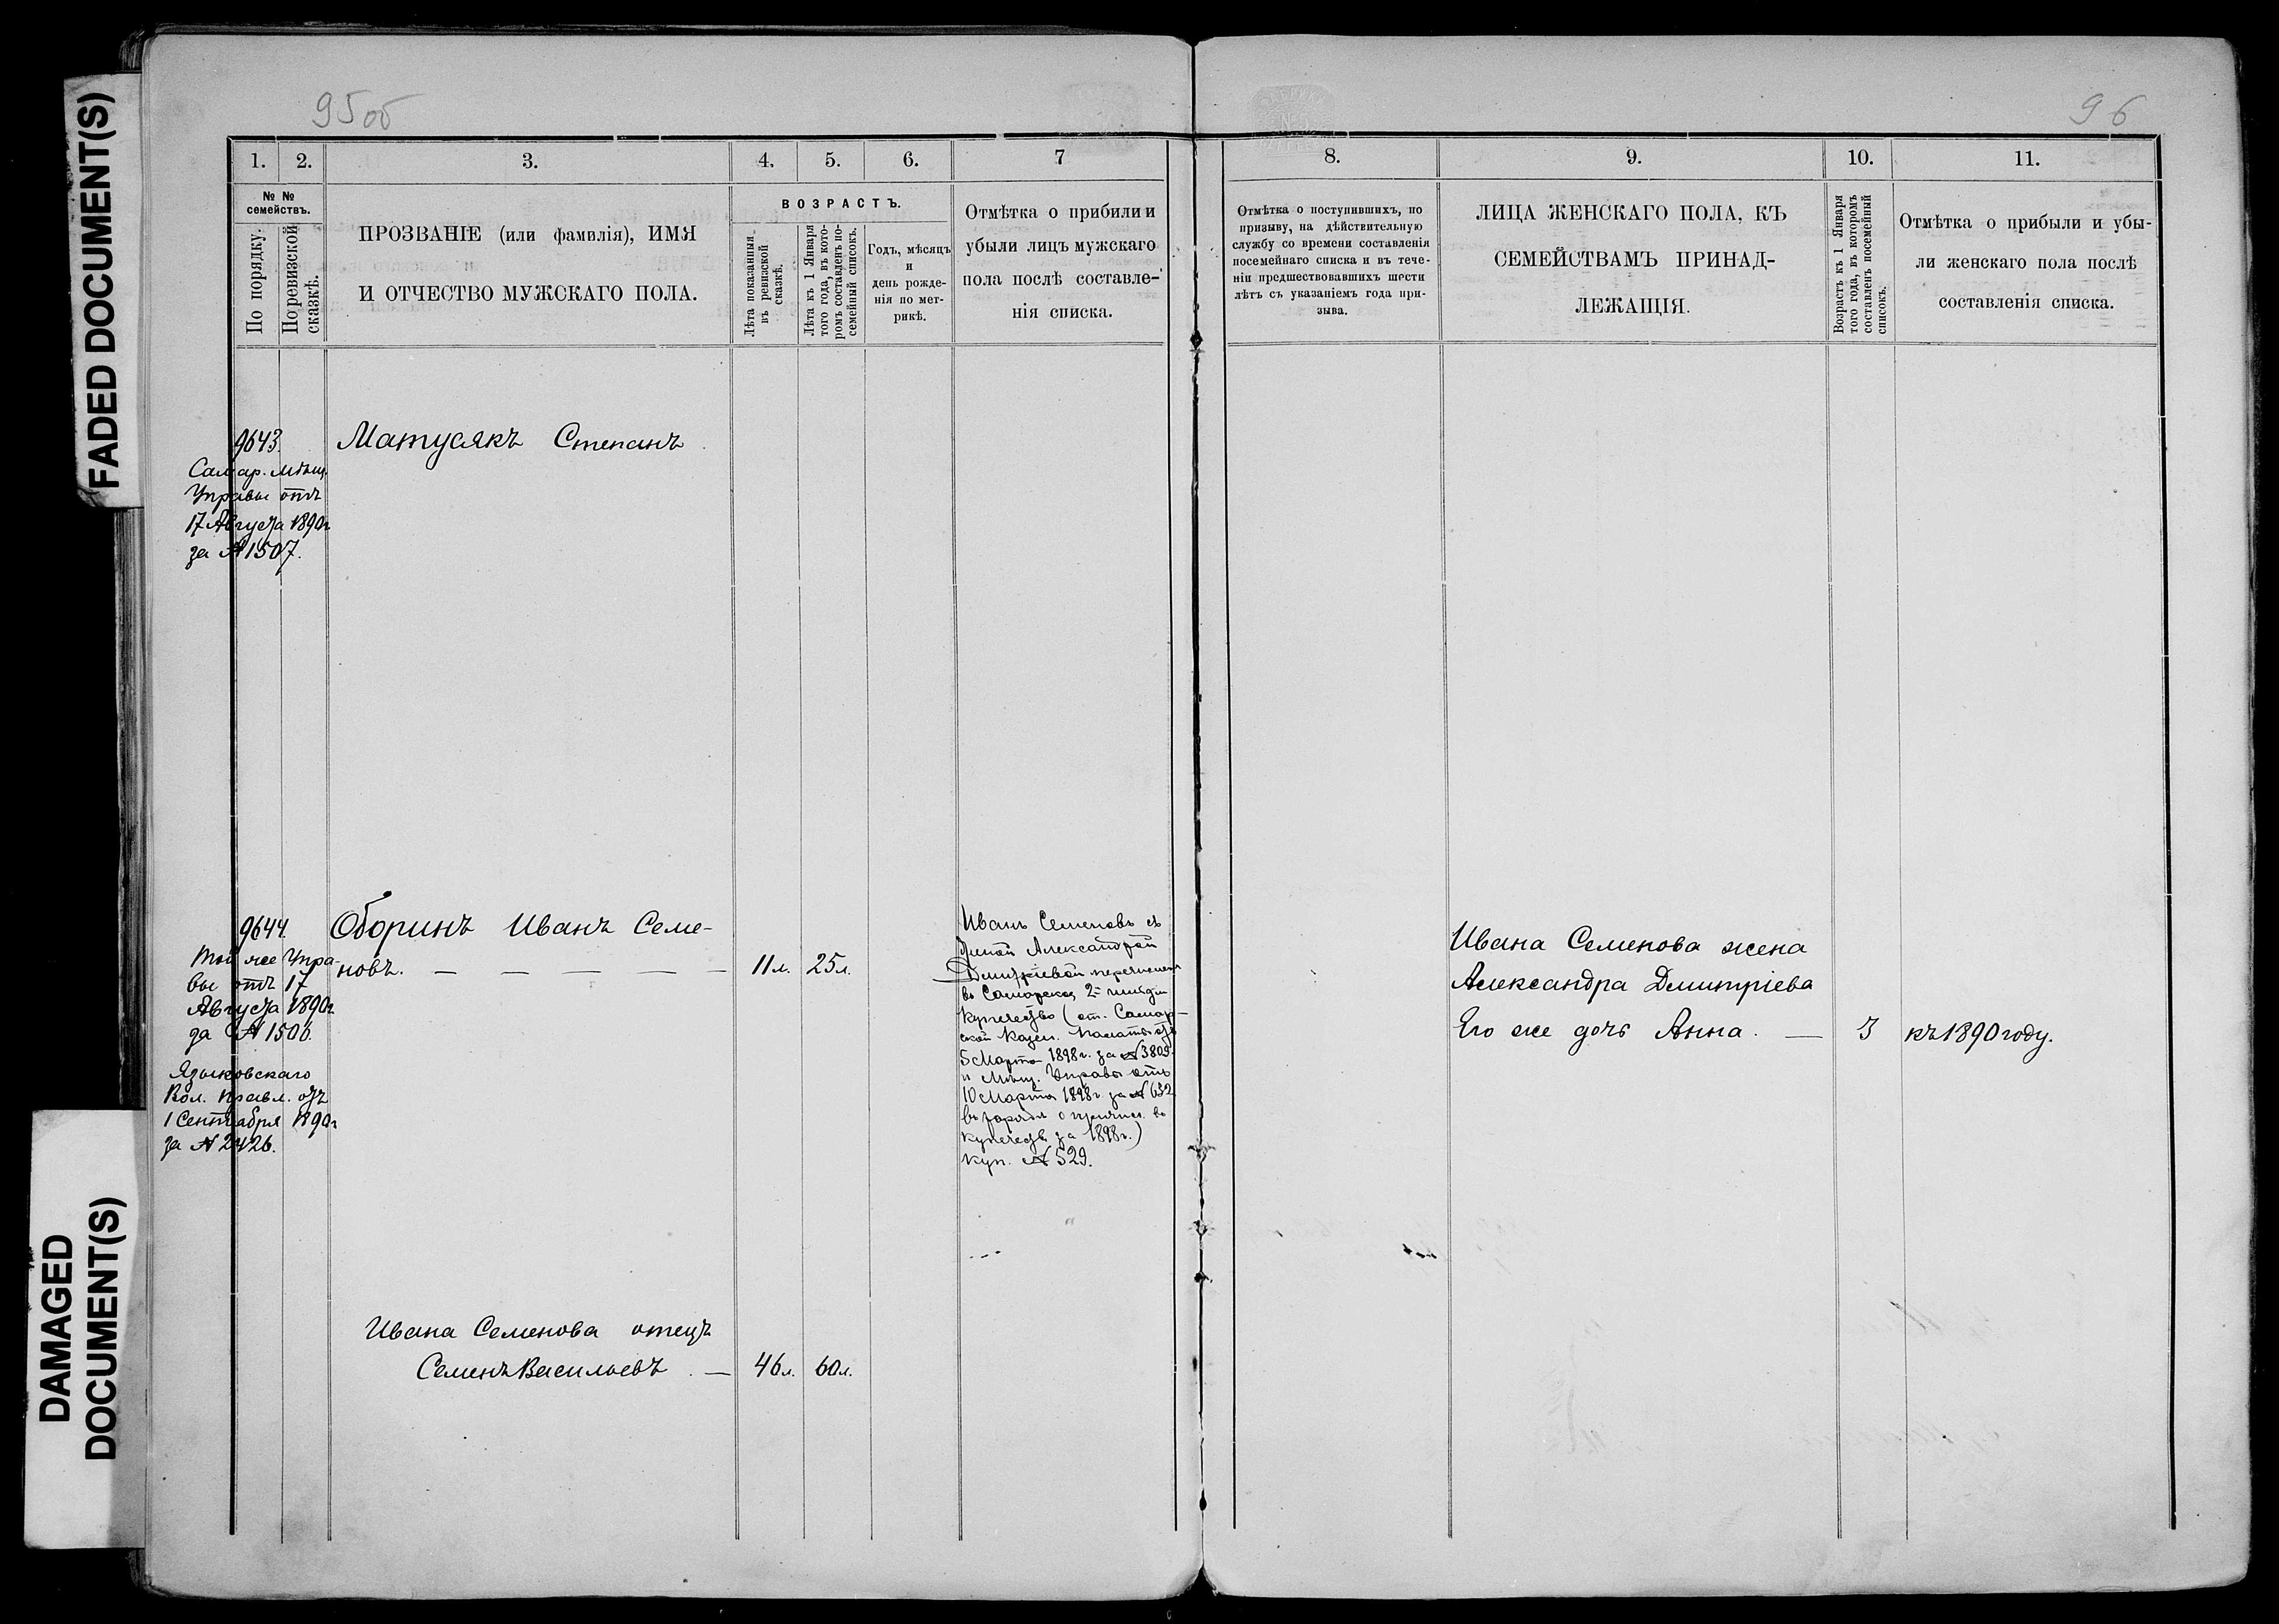 FADED DOCUMENT(S)
DAMAGED
DOCUMENT(S)
95об
1. 2. 3. 4. 5. 6. 7
№ №
семействъ.
По порядку.
По ревизской
сказкѣ.
ПРОЗВАНІЕ (или фамилія), ИМЯ
И ОТЧЕСТВО МУЖСКАГО ПОЛА.
ВОЗРАСТЪ.
Лѣта показанныя
въ ревизской
сказкѣ.
Лѣта къ 1 Января
того года, въ кото-
ромъ составленъ по-
семейный списокъ.
Годъ, мѣсяцъ
и
день рожде-
нія по мет-
рикѣ.
Отмѣтка о прибыли и
убыли лицъ мужскаго
пола послѣ составле-
нія списка.
9643.
Самар. Мѣщ.
Управы отъ
17 Августа 1890г
за № 1507.
Матусякъ Степанъ
9644.
Той же Упра-
вы отъ 17
Августа 1890г.
за № 1506.
Языковскаго
Вол. Правл. отъ
1 Сентября 1890г
за № 2426.
Оборинъ Иванъ Семе-
новъ. — — — — — 11л. 25л.
Иванъ Семеновъ съ
женой Александрой
Дмитріевой перечислен
въ Самарское 2й гильдіи
купечество (от. Самар-
ской Казен. Палаты отъ
5 Марта 1898г. за № 3809.
и Мѣщ. Управы отъ
10 Марта 1898г. за № 632
о причис. въ
купечество за 1898г.)
куп. № 529.
Ивана Семенова отецъ
Семенъ Васильевъ. — 46л. 60л.
96
8. 9. 10. 11.
Отмѣтка о поступившихъ, по
призыву, на дѣйствительную
службу со времени составленія
посемейнаго списка и въ тече-
ніи предшествовавшихъ шести
лѣтъ съ указаніемъ года при-
зыва.
ЛИЦА ЖЕНСКАГО ПОЛА, КЪ
СЕМЕЙСТВАМЪ ПРИНАД-
ЛЕЖАЩІЯ.
Возрастъ къ 1 Января
того года, въ которомъ
составленъ посемейный
списокъ.
Отмѣтка о прибыли и убы-
ли женскаго пола послѣ
составленія списка.
Ивана Семенова жена
Александра Дмитріева
Его же дочь Анна. — 3 къ 1890 году.